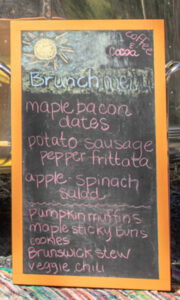 Coffee
&
Cocoa
Brunch menu
maple bacon
dates
potato sausage
pepper frittata
apple-spinach
salad
pumpkin muffins
maple sticky buns
cookies
Brunswick stew
veggie chili